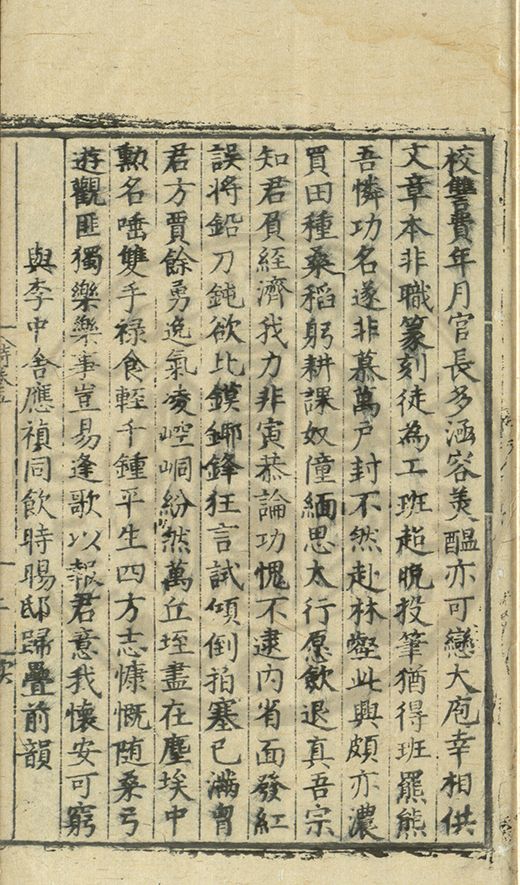 校讐費年月官長多涵容羙醖亦可戀大庖幸相供
文章本非職篆刻徒為工班超晚投筆猶得班羆熊
吾憐功名遂非慕萬戶封不然赴林壑此興頗亦濃
買田種桑稻躬耕課奴僮緬思太行愿飲退真吾宗
知君負經濟我力非寅恭論功愧不逮内省面發紅
誤將鉛刀鈍欲比鏌鎁鋒狂言試傾倒拍塞已滿胷
君方賈餘勇逸氣凌崆峒紛然萬丘垤盡在塵埃中
勲名唾雙手禄食輕千鍾平生四方志慷慨随桑弓
遊觀匪獨樂樂事豈易逢歌以報君意我懷安可窮
與李中舎應禎同飲時暘邸歸疊前韻